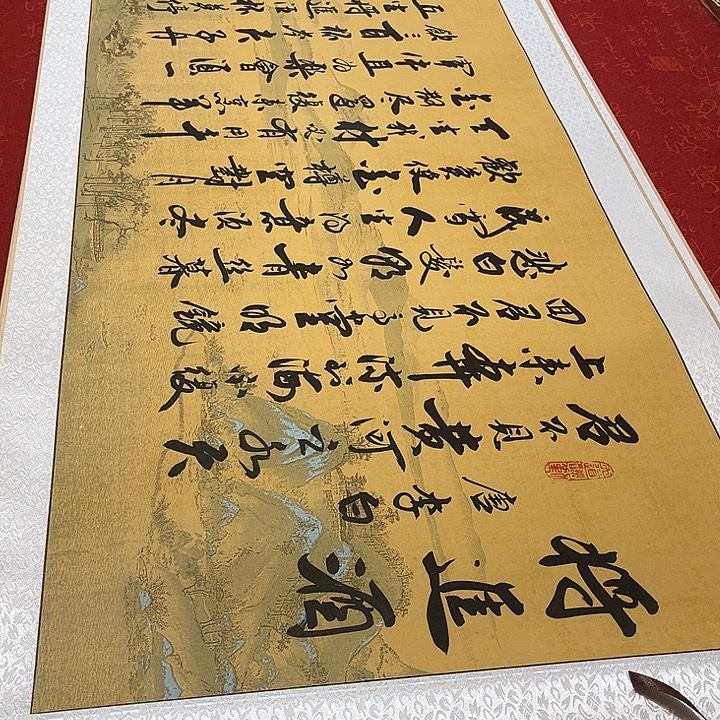 將進酒
唐 李白
君不見黄河之水天
上来奔流到海不復
回君不見高堂明鏡
悲白髮朝如青絲暮
成雪人生得意須尽
歡莫使金樽空對月
天生我材必有用千
金散尽還復来烹羊
宰牛且为樂會須一
飲三百杯岑夫子丹
丘生將進酒杯莫停